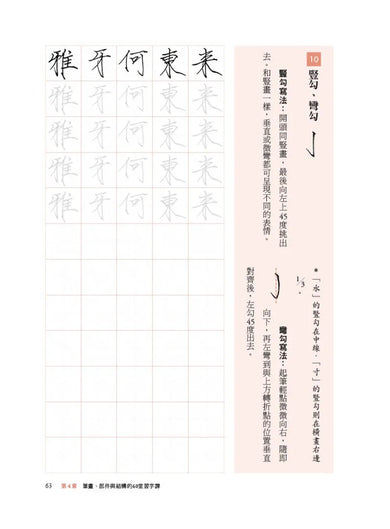 10 豎勾、彎勾
豎勾寫法：開頭同豎畫，最後向左上45度挑出
去。和豎畫一樣，垂直或微彎都可呈現不同的表情。
*「水」的豎勾在中線，「寸」的豎勾則在橫畫右邊
1/3。
彎勾寫法：起筆輕點微微向右，隨即
向下，再左彎到與上方轉折點的位置垂直
對齊後，左勾45度出去。
来東何牙雅
来東何牙雅
来東何牙雅
来東何牙雅
来東何牙雅
63 第4章 筆畫、部件與結構的60堂習字課